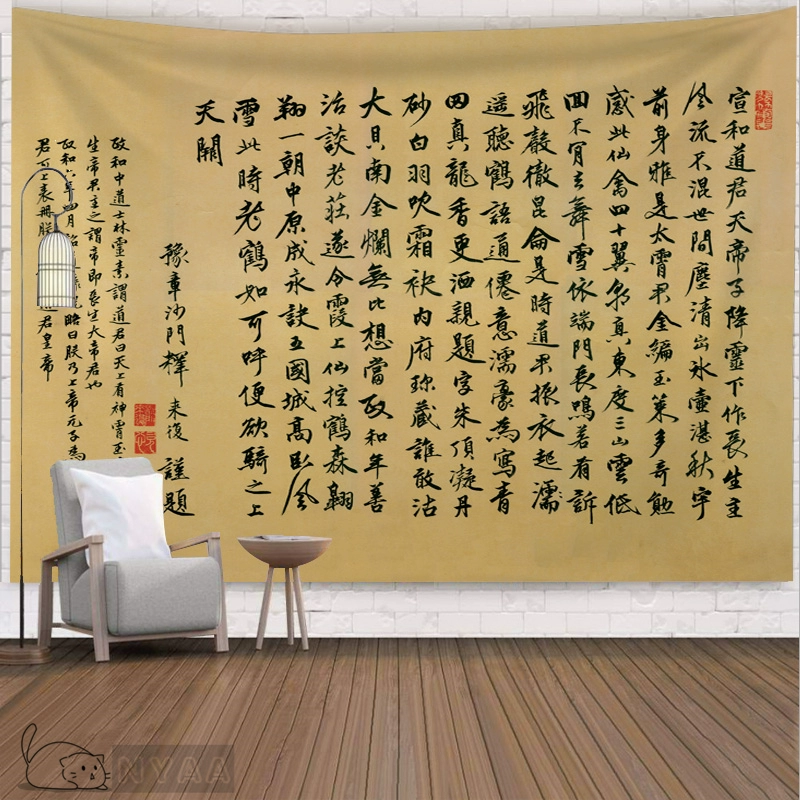 宣和道君天帝子降靈下作長生主
風流不混世間塵清出冰壺湛秋宇
前身雅是太霄君金編玉策多奇勛
感此仙禽四十翼朝真東度三山雲低
回不肯去舞雪依端門長鳴若有訴
飛聲徹昆侖是時道君振衣起濡
遥聽鶴語道僊意濡豪為寫青
田真龍香更洒親題字朱頂凝丹
砂白羽吹霜袂内府珍藏誰敢沽
大貝南金爛無比想當政和年善
治談老莊遂令霞上仙控鶴森翱
翔一朝中原成永訣五國城高卧風
雪此時老鶴如可呼便欲騎之上
天闕
豫章沙門釋 來復 謹題
政和中道士林靈素謂道君曰天上有神霄玉
生帝君主之謂帝即長生大帝君也
政和六年四月 略曰朕乃上帝元子為
君可上表冊朕 君皇帝
NYAA